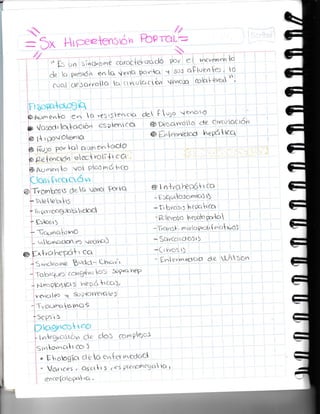 Sx Hipertensión Portal
"Es un síndrome caracterizado por el incremento
de la presión en la vena porta y sus afluentes, lo
cual desarrolla la circulación venosa colateral".
Fisiopatología
Aumento en la resistencia del flujo venoso
Vasodilatación esplénica
Desarrollo de circulación
Hipovolemia
Enfermedad hepática
Flujo portal aumentado
Retención electrolítica
Aumento vol plasmático
Clasificación
Trombosis de la vena Porta
- Pileflebitis
- Hipercoagulabilidad
- Éstasis
- Traumatismo
Extrahepática
- Síndrome Budd-Chiari
- Tabiques congénitos
- Neoplasias hepáticas,
renales y suprarrenales
- Traumatismos
- Sepsis
Intrahepática
- Esquistosomiasis
- Fibrosis hepática
- Sarcoidosis
- Cirrosis
- Enfermedad de Wilson
Diagnóstico
- Integración de dos complejos
Sintomáticos
Etiología de la enfermedad
Varices, ascitis, esplenomegalia,
encefalopatía.